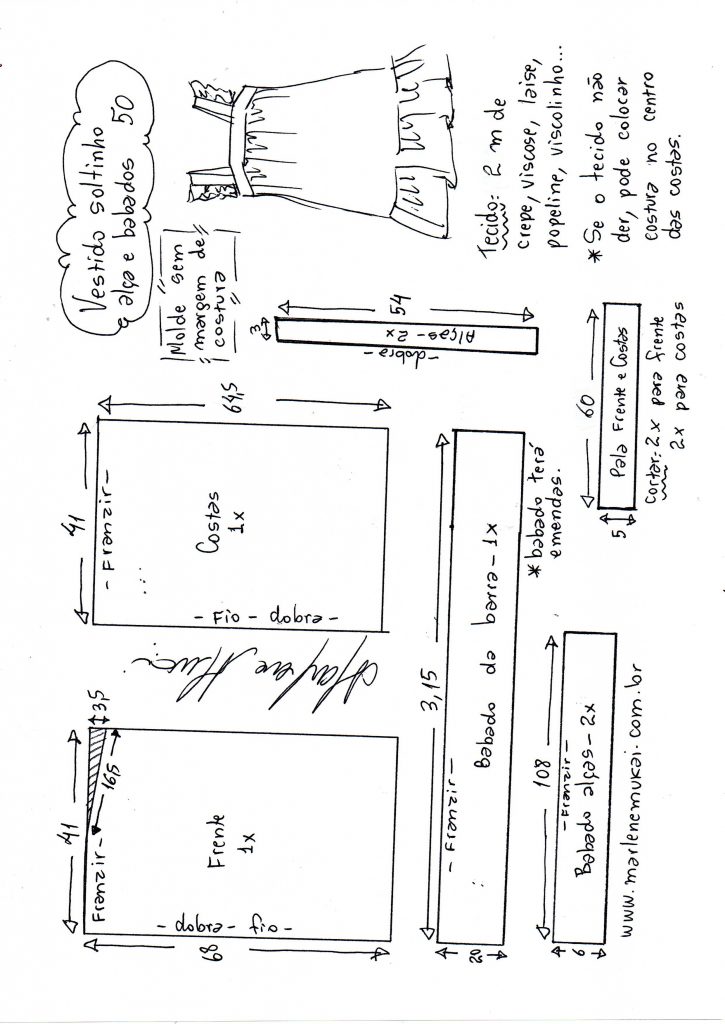 Vestido soltinho
alça e babados 50
Molde sem
margem de
costura
Tecido: 2 m de
crepe, viscose, laise,
popeline, viscolinho...
* Se o tecido não
der, pode colocar
costura no centro
das costas.
41
3,5
16,5
- Franzir -
Frente
1x
- dobra - fio -
68
41
- Franzir -
Costas
1x
- Fio - dobra -
64,5
3
54
Alças - 2x
- dobra -
3,15
- Franzir -
Babado da barra - 1x
20
* babado terá
emendas.
108
- Franzir -
Babado alças - 2x
6
60
Pala Frente e Costas
5
cortar: 2x para frente
2x para costas
www.marlenemukai.com.br